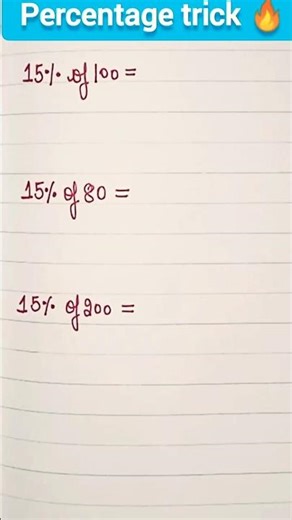 Percentage trick 🔥
15% of 100 =
15% of 80 =
15% of 200 =